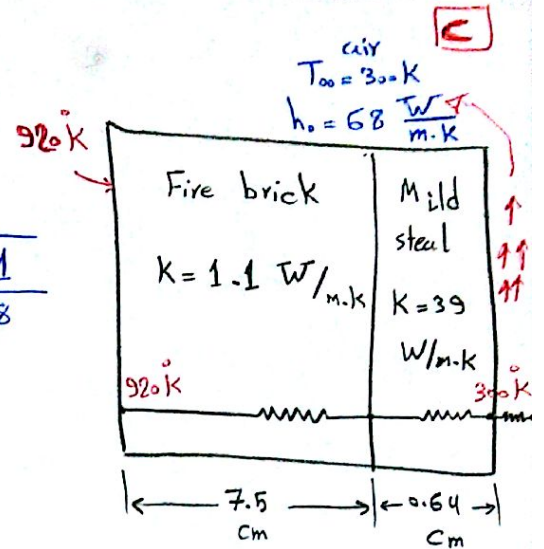 C
air
T∞ = 300 K
h₀ = 68 W/m.K
920 °K
Fire brick
K = 1.1 W/m.K
Mild
steal
K = 39
W/m.K
1
8
920 °K
300 °K
7.5
cm
0.64
Cm